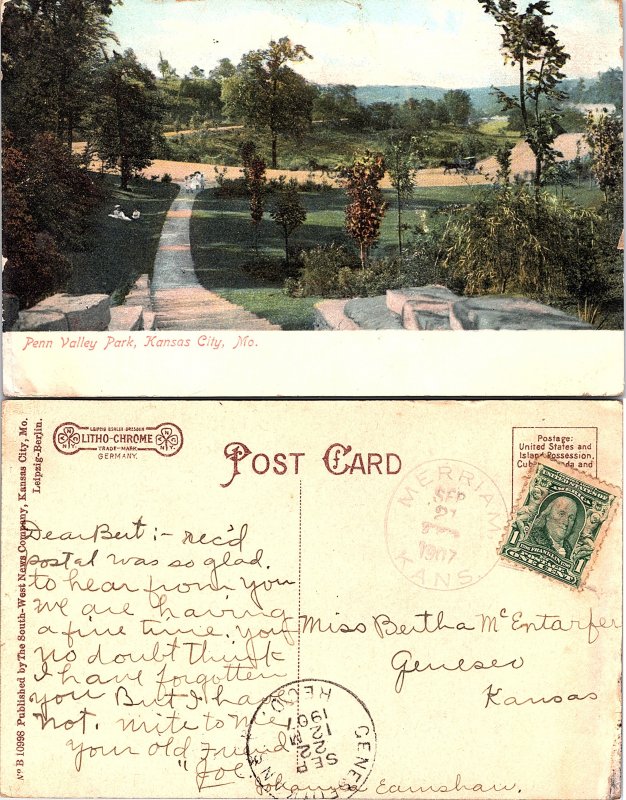 Penn Valley Park, Kansas City, Mo.
No B 10998 Published by The South-West News Company, Kansas City, Mo.
Leipzig-Berlin.
LEIPZIG BERLIN DRESDEN
LITHO-CHROME
TRADE-MARK
GERMANY.
POST CARD
Postage:
United States and
Island Possession,
and
UNITED STATES
FRANKLIN
1 1
MERRIAM
SEP
21
1907
KANS.
Dear Bert:- rec'd
postal was so glad
to hear from you
we are having
a fine time. you
no doubt think
I have forgotten
you But I have
not. write to me
your old friend
"Joe"
Johanna Earnshaw.
Miss Bertha McEntarfer
Geneseo
Kansas
GENESEO
REC'D.
SE 22
1907